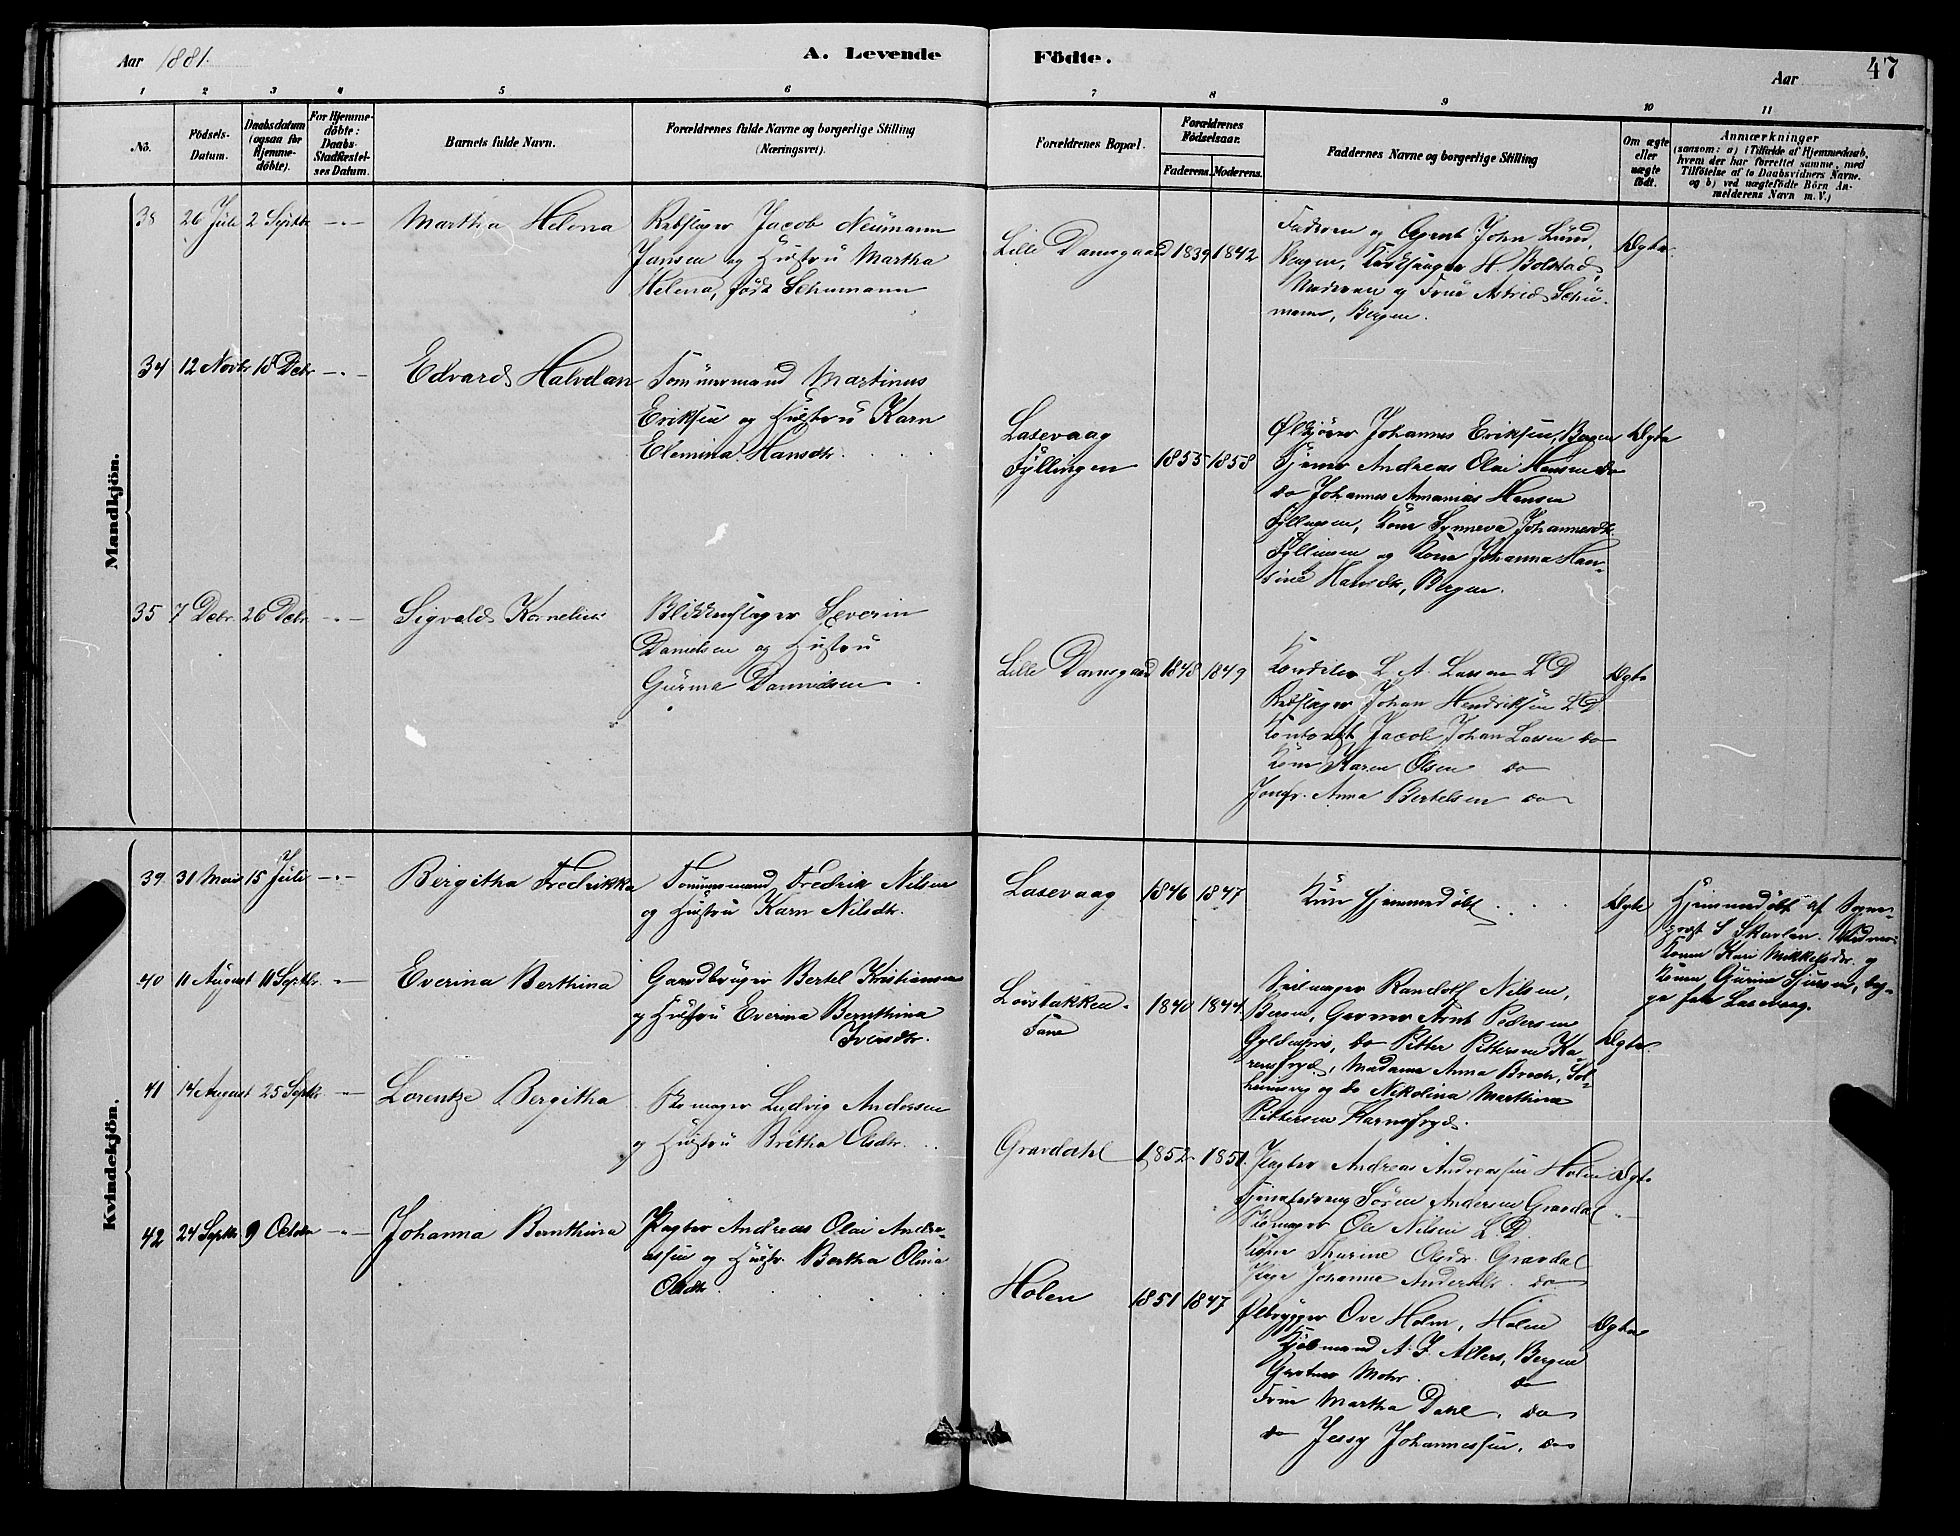 Aar 1881.
A. Levende
Födte.
Aar
47
1 2 3 4 5 6 7 8 9 10 11
No.
Födsels-
Datum.
Daabsdatum
(ogsaa for
Hjemme-
döbte).
For Hjemme-
döbte:
Daabs-
Stadfæstel-
ses Datum.
Barnets fulde Navn.
Forældrenes fulde Navne og borgerlige Stilling
(Næringsvei).
Forældrenes Bopæl.
Forældrenes
Födselsaar.
Faderens. Moderens.
Faddernes Navne og borgerlige Stilling
Om ægte
eller
uægte
födt.
Anmærkninger
(saasom: a) i Tilfælde af Hjemmedaab,
hvem der har forrettet samme, med
Tilföielse af to Daabsvidners Navne.
og b) ved uægtefödte Börn An-
melderens Navn m. V.)
Mandkjön.
38 26 Juli 2 Septbr -"- Martha Helena
Rebslager Jacob Neumann
Jansen og Hustru Martha
Helena, född Schumann
Lille Damsgaard 1839 1842
Faderen og Agent John Lund,
Bergen, Kirkesanger H. Bolstad,
Moderen og Frue Astrid Schu-
mann, Bergen.
Ægte
34 12 Novbr 18 Debr -"- Edvard Halvdan
Tömmermand Martinus
Eriksen og Hustru Karn
Elemina Hansdtr.
Laxevaag
Fyllingen 1855 1858
Ølkjörer Johannes Eriksen, Bergen
Tjener Andreas Olai Hansen do
do Johannes Amanias Hansen
Fyllingen, Kone Synneva Johannesdtr.
Fyllingen og Kone Johanna Han-
sine Hansdtr, Bergen.
Ægte
35 7 Debr 26 Debr -"- Sigvald Kornelius
Blikkenslager Severin
Danielsen og Hustru
Gurina Danielsen
Lille Damsgaard 1848 1849
L. A. Lassen LD
Rebslager Johan Hendriksen LD
Kontorist Jacob Johan Lassen do
Kone Karen Olsen do
Jomfr. Anna Bertelsen do
Ægte
Kvindekjön.
39 31 Mai 15 Juli -"- Bergitha Fredrikka
Tömmermand Fredrik Nilsen
og Hustru Karn Nilsdtr.
Laxevaag 1846 1847
Kun hjemmedöbt
Ægte
Hjemmedöbt af Sogne-
prest S Skavlan. Vidner
Konen Kari Mikkelsdr. og
Konen Gurina Sjursen, beg-
ge fra Laxevaag.
40 11 August 11 Septbr -"- Everina Berthina
Gaardbruger Bertel Kristiansen
og Hustru Everina Bernthina
Iversdtr.
Lövstakken
Fane 1840 1844
Seilmager Randolf Nilsen,
Bergen, Garver Arnt Pedersen
Gyldenpris, do Pitter Pittersen Ka-
rensfryd, Madame Anna Broch, Sol-
heimsvig og do Nikolina Marthina
Pittersen Karensfryd.
Ægte
41 14 August 25 Septbr -"- Lorentze Bergitha
Skomager Ludvig Andersen
og Hustru Britha Olsdtr.
Gravdahl 1852 1851
Pagter Andreas Andreassen Holen
Tjenestedreng Sören Andersen Gravdal
Skomager Ole Nilsen LD.
Kone Thurine Olsdr. Gravdal
Pige Johanna Andersdtr. do
Ægte
42 24 Septbr 9 Octobr -"- Johanna Bernthina
Pagter Andreas Olai Andre-
assen og Hustr. Bertha Olina
Olsdtr.
Holen 1851 1847
Ølbrygger Ove Holm, Holen
Kjöbmand A. J. Allers, Bergen
Gartner Mohr. do
Frue Martha Dahl, do
do Jessy Johannessen, do
Ægte